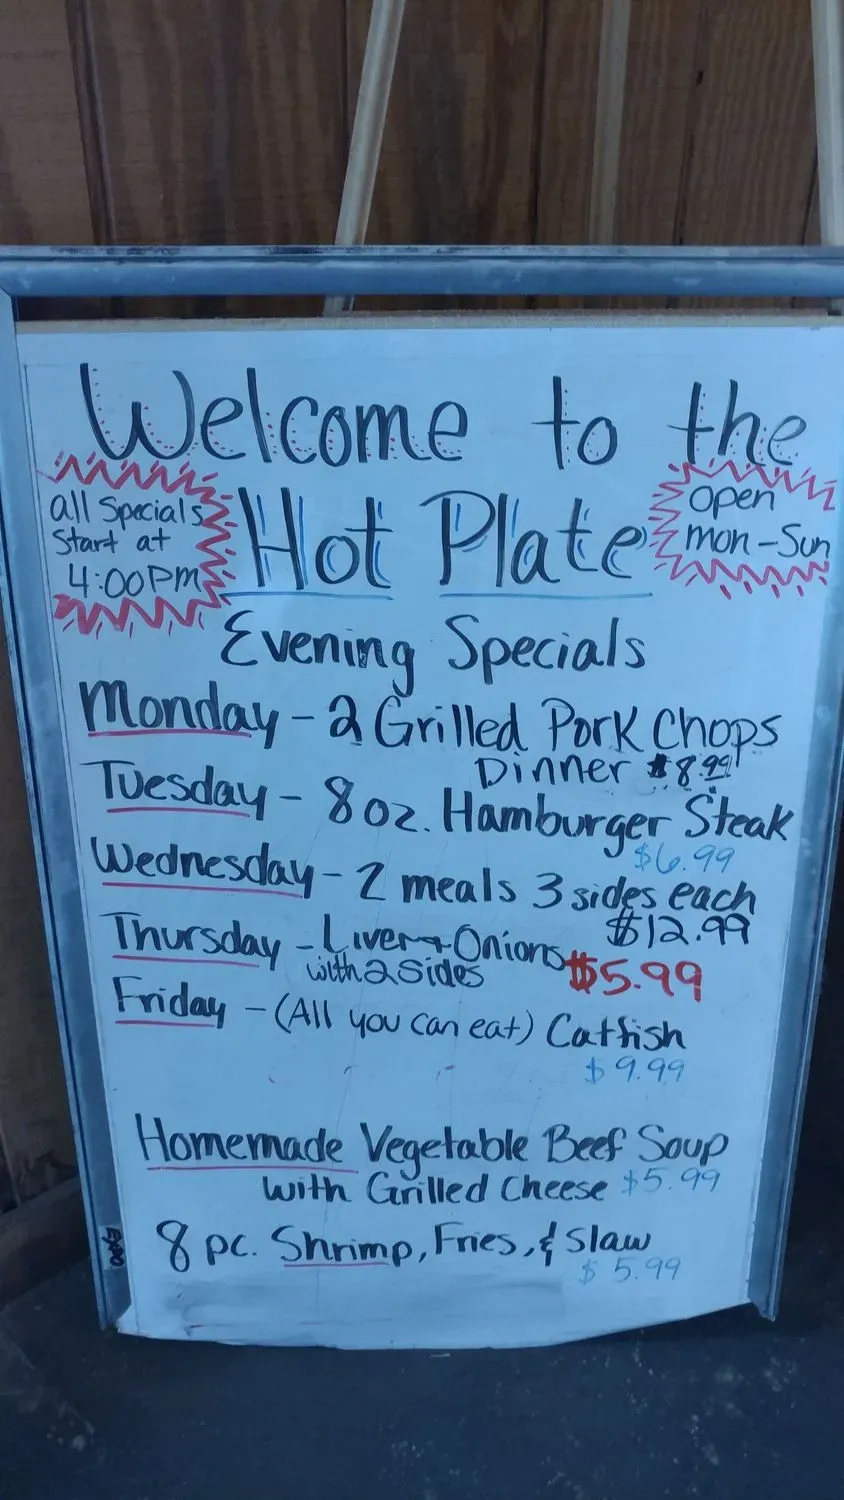 Welcome to the
all Specials
Start at
4:00 PM
Hot Plate
open
mon-Sun
Evening Specials
Monday - 2 Grilled Pork Chops
Dinner $8.99
Tuesday - 8 oz. Hamburger Steak
$6.99
Wednesday - 2 meals 3 sides each
$12.99
Thursday - Liver + Onions
with 2 Sides $5.99
Friday - (All you can eat) Catfish
$9.99
Homemade Vegetable Beef Soup
with Grilled Cheese $5.99
8 pc. Shrimp, Fries, & Slaw
$5.99
EXPO